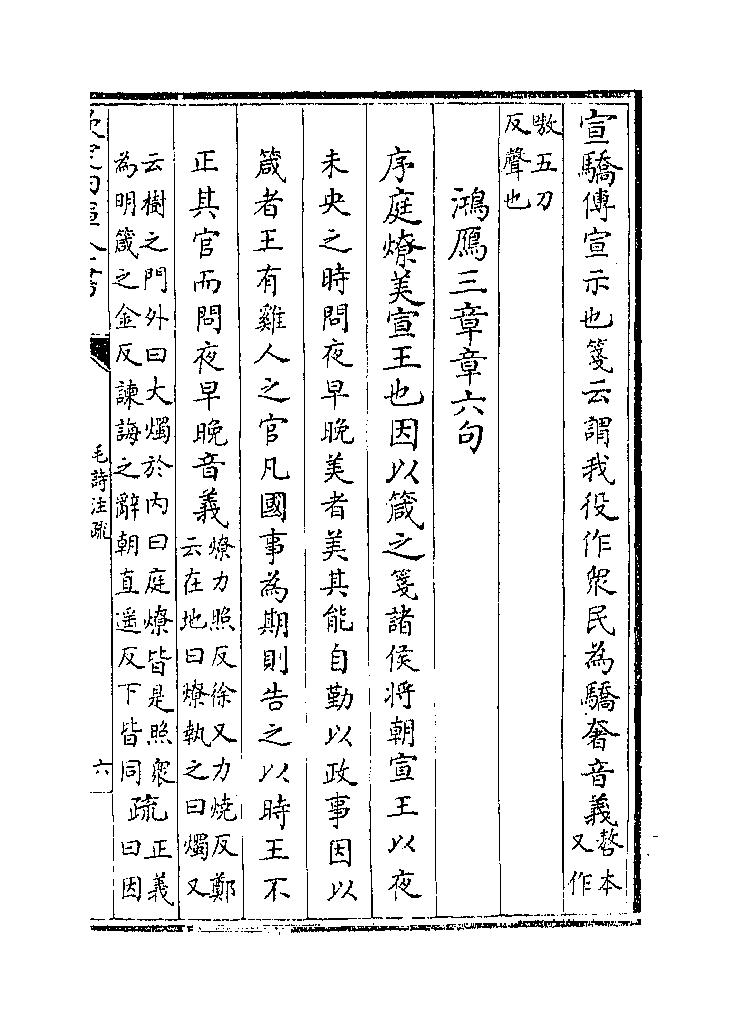 宣驕傳宣示也箋云謂我役作衆民為驕奢音義嗸本
又作
嗷五刀
反聲也
鴻鴈三章章六句
序庭燎美宣王也因以箴之箋諸侯将朝宣王以夜
未央之時問夜早晚美者美其能自勤以政事因以
箴者王有雞人之官凡國事為期則告之以時王不
正其官而問夜早晚音義燎力照反徐又力燒反鄭
云在地曰燎執之曰燭又
云樹之門外曰大燭於内曰庭燎皆是照衆
為明箴之金反諫誨之辭朝直遥反下皆同
疏正義
曰因
欽定四庫全書
毛詩注疏
六